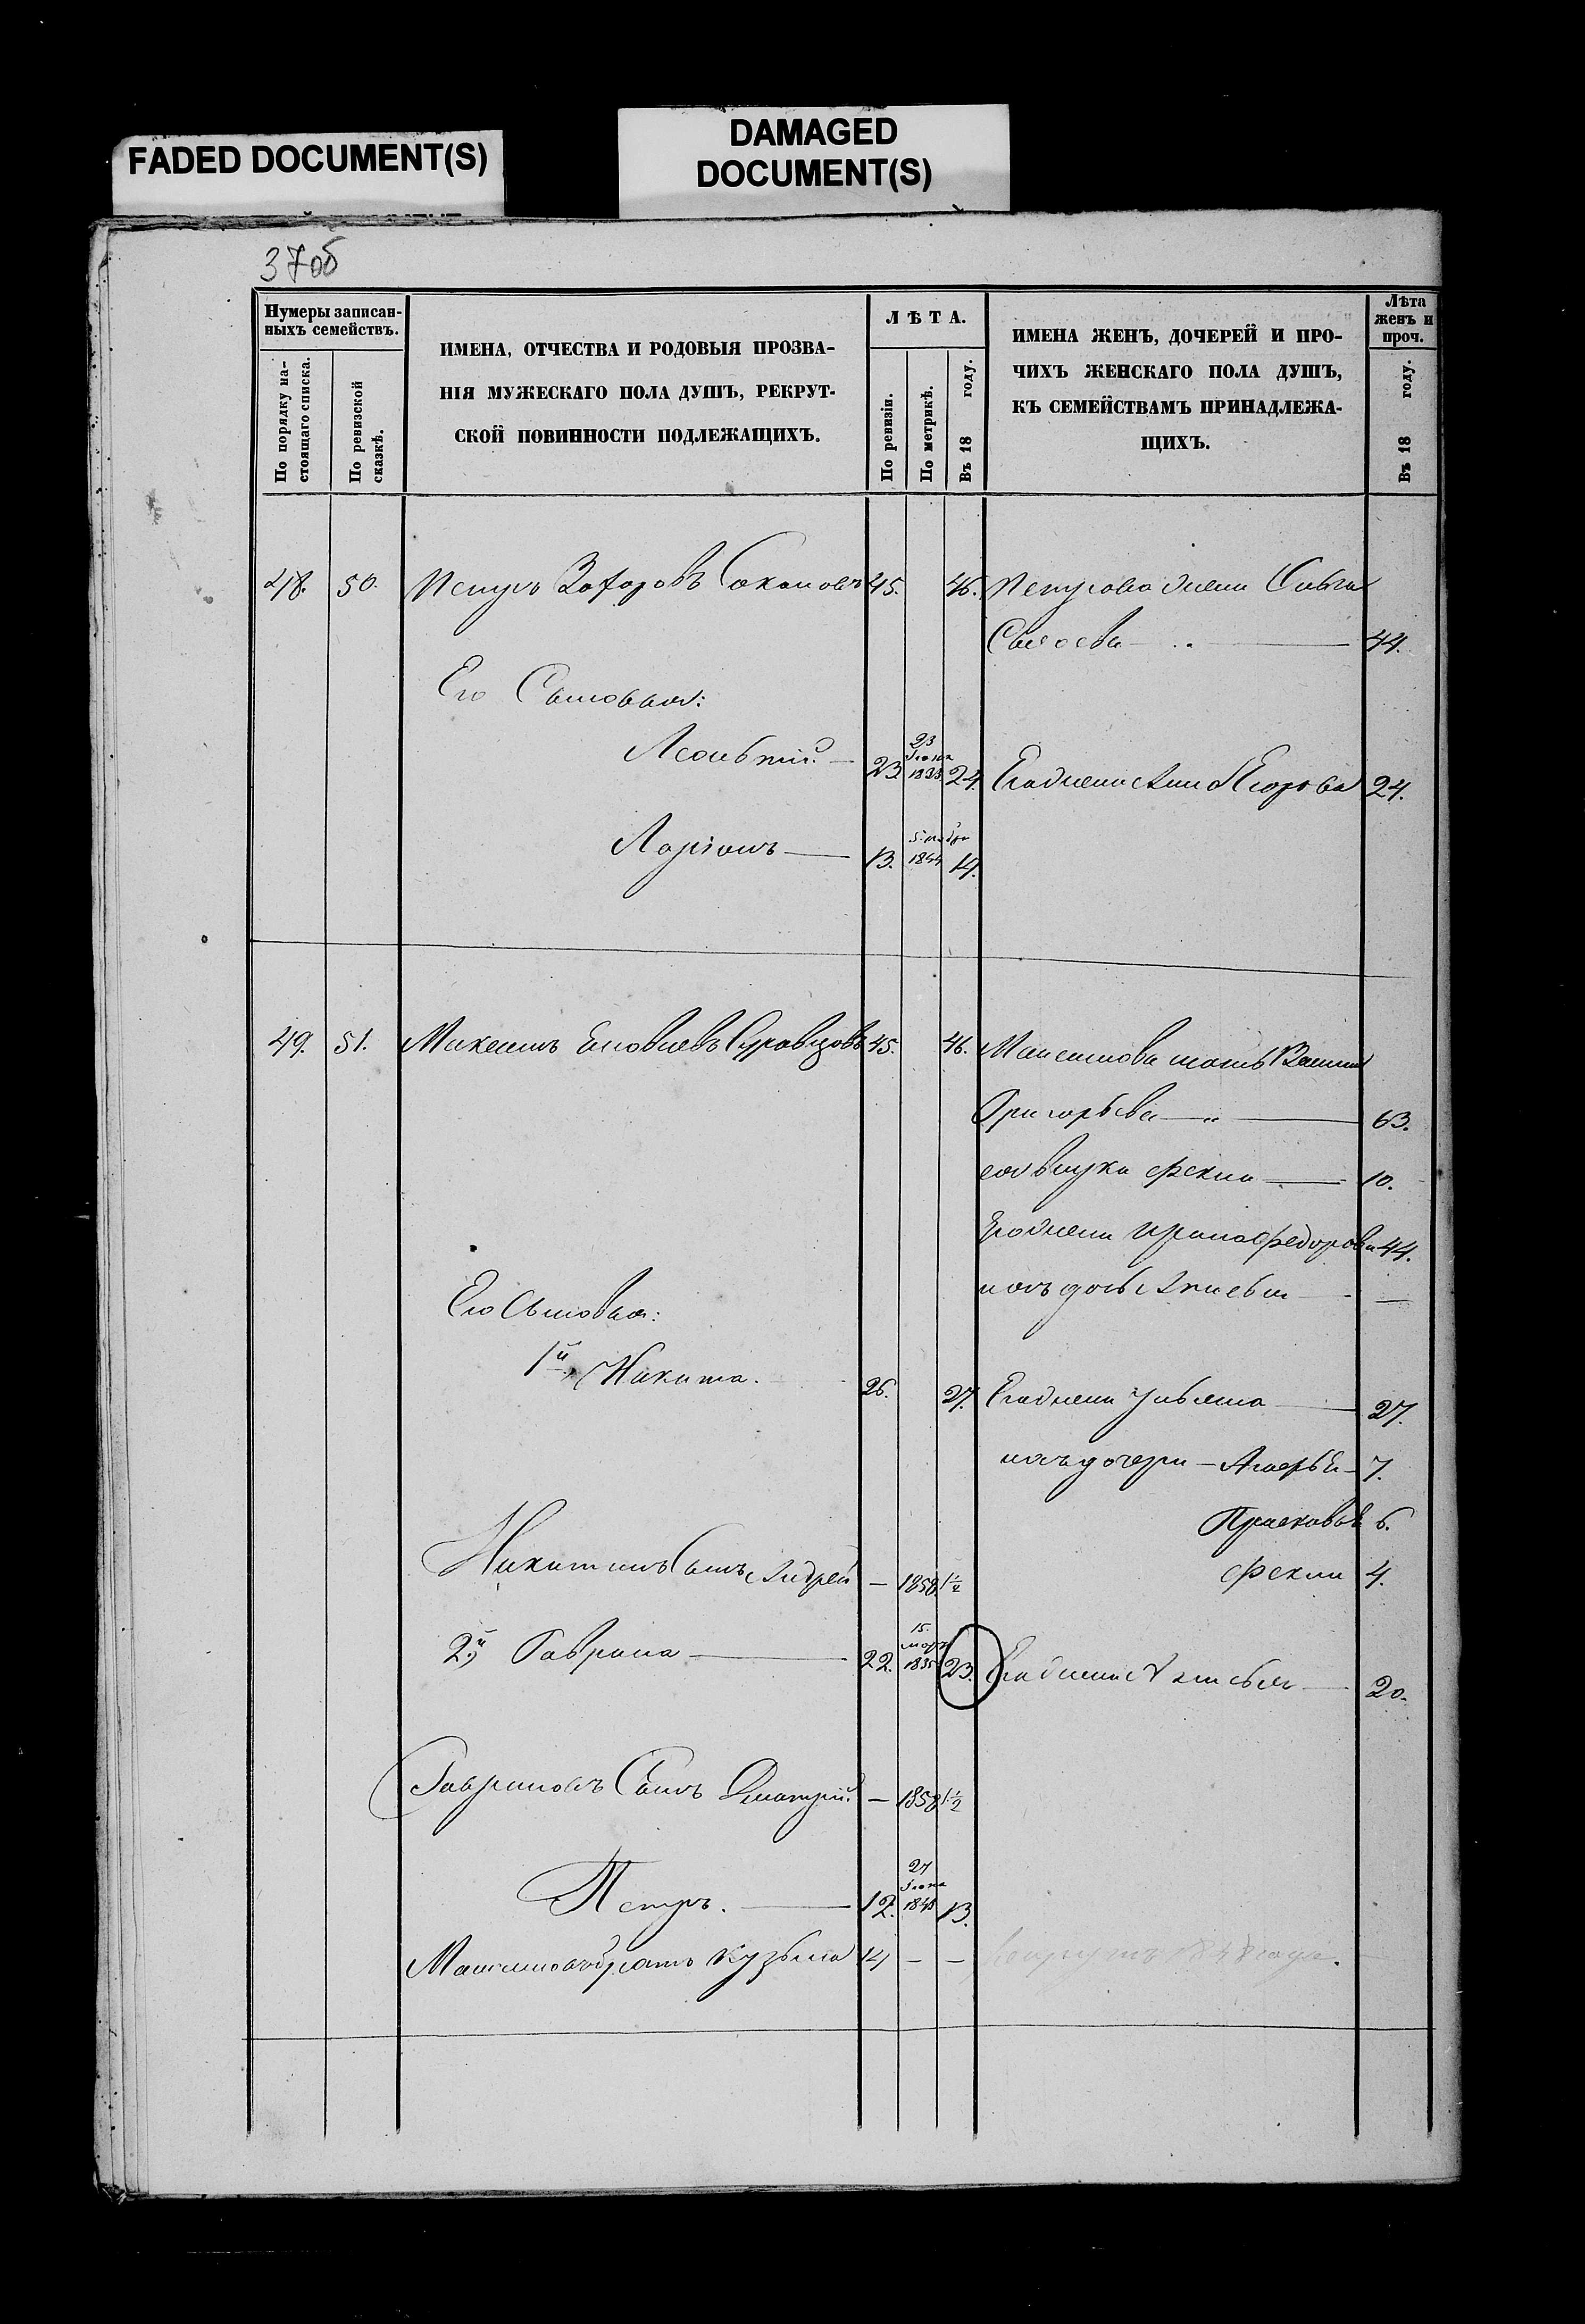 FADED DOCUMENT(S)
DAMAGED
DOCUMENT(S)
37об
Нумеры записан-
ныхъ семействъ.
По порядку на-
стоящаго списка.
По ревизской
сказкѣ.
ИМЕНА, ОТЧЕСТВА И РОДОВЫЯ ПРОЗВА-
НІЯ МУЖЕСКАГО ПОЛА ДУШЪ, РЕКРУТ-
СКОЙ ПОВИННОСТИ ПОДЛЕЖАЩИХЪ.
ЛѢТА.
По ревизіи.
По метрикѣ.
Въ 18 году.
ИМЕНА ЖЕНЪ, ДОЧЕРЕЙ И ПРО-
ЧИХЪ ЖЕНСКАГО ПОЛА ДУШЪ,
КЪ СЕМЕЙСТВАМЪ ПРИНАДЛЕЖА-
ЩИХЪ.
Лѣта
женъ и
проч.
Въ 18 году.
48. 50. Петръ Захаровъ 45. 46. Петрова жена
44.
Его Сыновья:
Леонтій — 23. 23 Іюня 1835 24. Его жена Анна Егорова 24.
Ларіонъ — 13. 1844 14.
49. 51. Максимъ 45. 46. Максимова мать
Григорьева — 63.
ея внучка Фекла — 10.
Его жена Ирина Федорова 44.
ихъ дочь — —
Его Сыновья:
1й Никита. 26. 27. Его жена Ульяна — 27.
ихъ дочери — 7.
Прасковья 6.
Фекла 4.
Никитинъ Сынъ Андрей — 1858 1½
2й, Гаврила — 22. 15. март 1835 23. Его жена — 20.
Гавриловъ Сынъ Дмитрій. — 1858 1½
Петръ. — 12. 27 Іюня 1845 13.
Максимовъ братъ Кузьма 14 — —